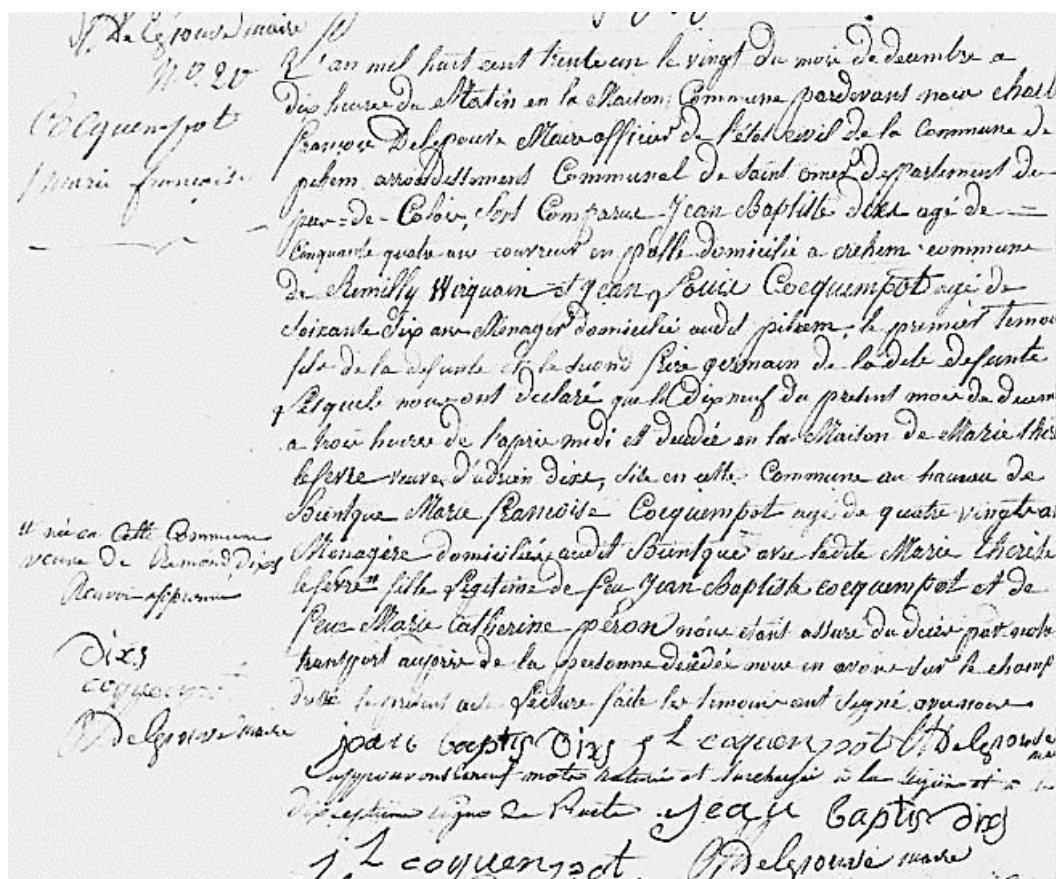 Delepouve maire
N° 20
Cocquempot
marie françoise
L'an mil huit cent trente un le vingt du mois de decembre a
dix heures du Matin en la Maison Commune pardevant nous Charl
françois Delepouve Maire officier de l'état civil de la Commune de
pihem arrondissement Communal de Saint omer departement de
pas=de=Calais, sont Comparus Jean Baptiste dixs agé de
cinquante quatre ans couvreur en paille domicilié a crehem commune
de Remilly Wirquain et Jean Louis Cocquempot agé de
soixante dix ans Menager domicilié audit pihem, le premier temoi
fils de la defunte et le second frere germain de la dite defunte
Lesquels nous ont declaré que le dix neuf du present mois de decem
a trois heures de l'apres midi et décédée en la Maison de Marie ther
lefevre veuve d'adrien dixs, sise en cette Commune au hameau de
Bientque Marie francoise Cocquempot agé de quatre vingt a
Menagère domiciliée audit Bientque avec ladite Marie therèse
lefevre" fille Legitime de feu Jean Baptiste cocquempot et de
feue Marie Catherine péron nous etant assure du decès par notre
transport auprès de la personne décédée nous en avons sur le champ
dressé le present acte Lecture faite les temoins ont signé avec nous
" née en Cette Commune
veuve de Remond Dixs
Renvoi approuvé
Dixs
coquempot
Delepouve maire
jean baptis Dixs j L coquenpot Delepouve
approuvons neuf mots raturés et surchargé à la et à
dix septieme ligne de Jean baptis dixs
j L coquenpot Delepouve maire